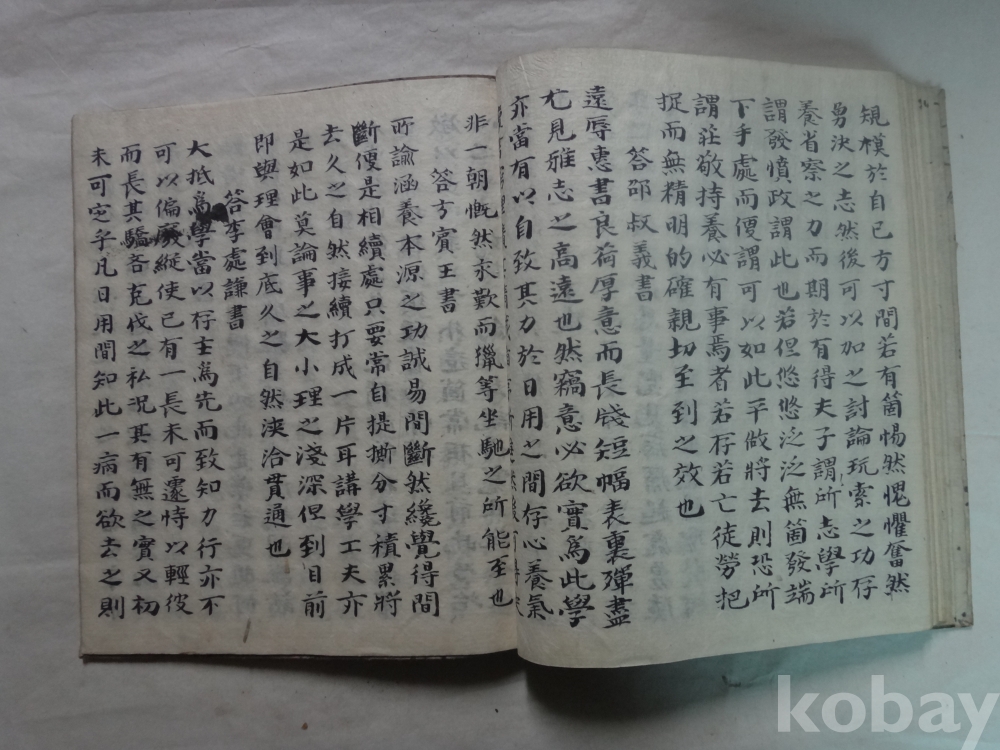 規模於自己方寸間若有箇惕然愧懼奮然
勇決之志然後可以加之討論玩索之功存
養省察之力而期於有得夫子謂所志學所
謂發憤政謂此也若但悠悠泛泛無箇發端
下手處而便謂可以如此平做將去則恐所
謂莊敬持養必有事焉者若存若亡徒勞把
捉而無精明的確親切至到之效也
答邵叔義書
遠辱惠書良荷厚意而長牋短幅表裏殫盡
尤見雅志之高遠也然竊意必欲實爲此學
亦當有以自致其力於日用之間存心養氣
非一朝慨然永歎而獵等坐馳之所能至也
答方賓王書
所諭涵養本源之功誠易間斷然纔覺得間
斷便是相續處只要常自提撕分寸積累將
去久之自然接續打成一片耳講學工夫亦
是如此莫論事之大小理之淺深但到目前
即與理會到底久之自然浹洽貫通也
答李處謙書
大抵爲學當以存主爲先而致知力行亦不
可以偏廢縱使已有一長未可遽恃以輕彼
而長其驕吝克伐之私況其有無之實又初
未可定乎凡日用間知此一病而欲去之則
kobay